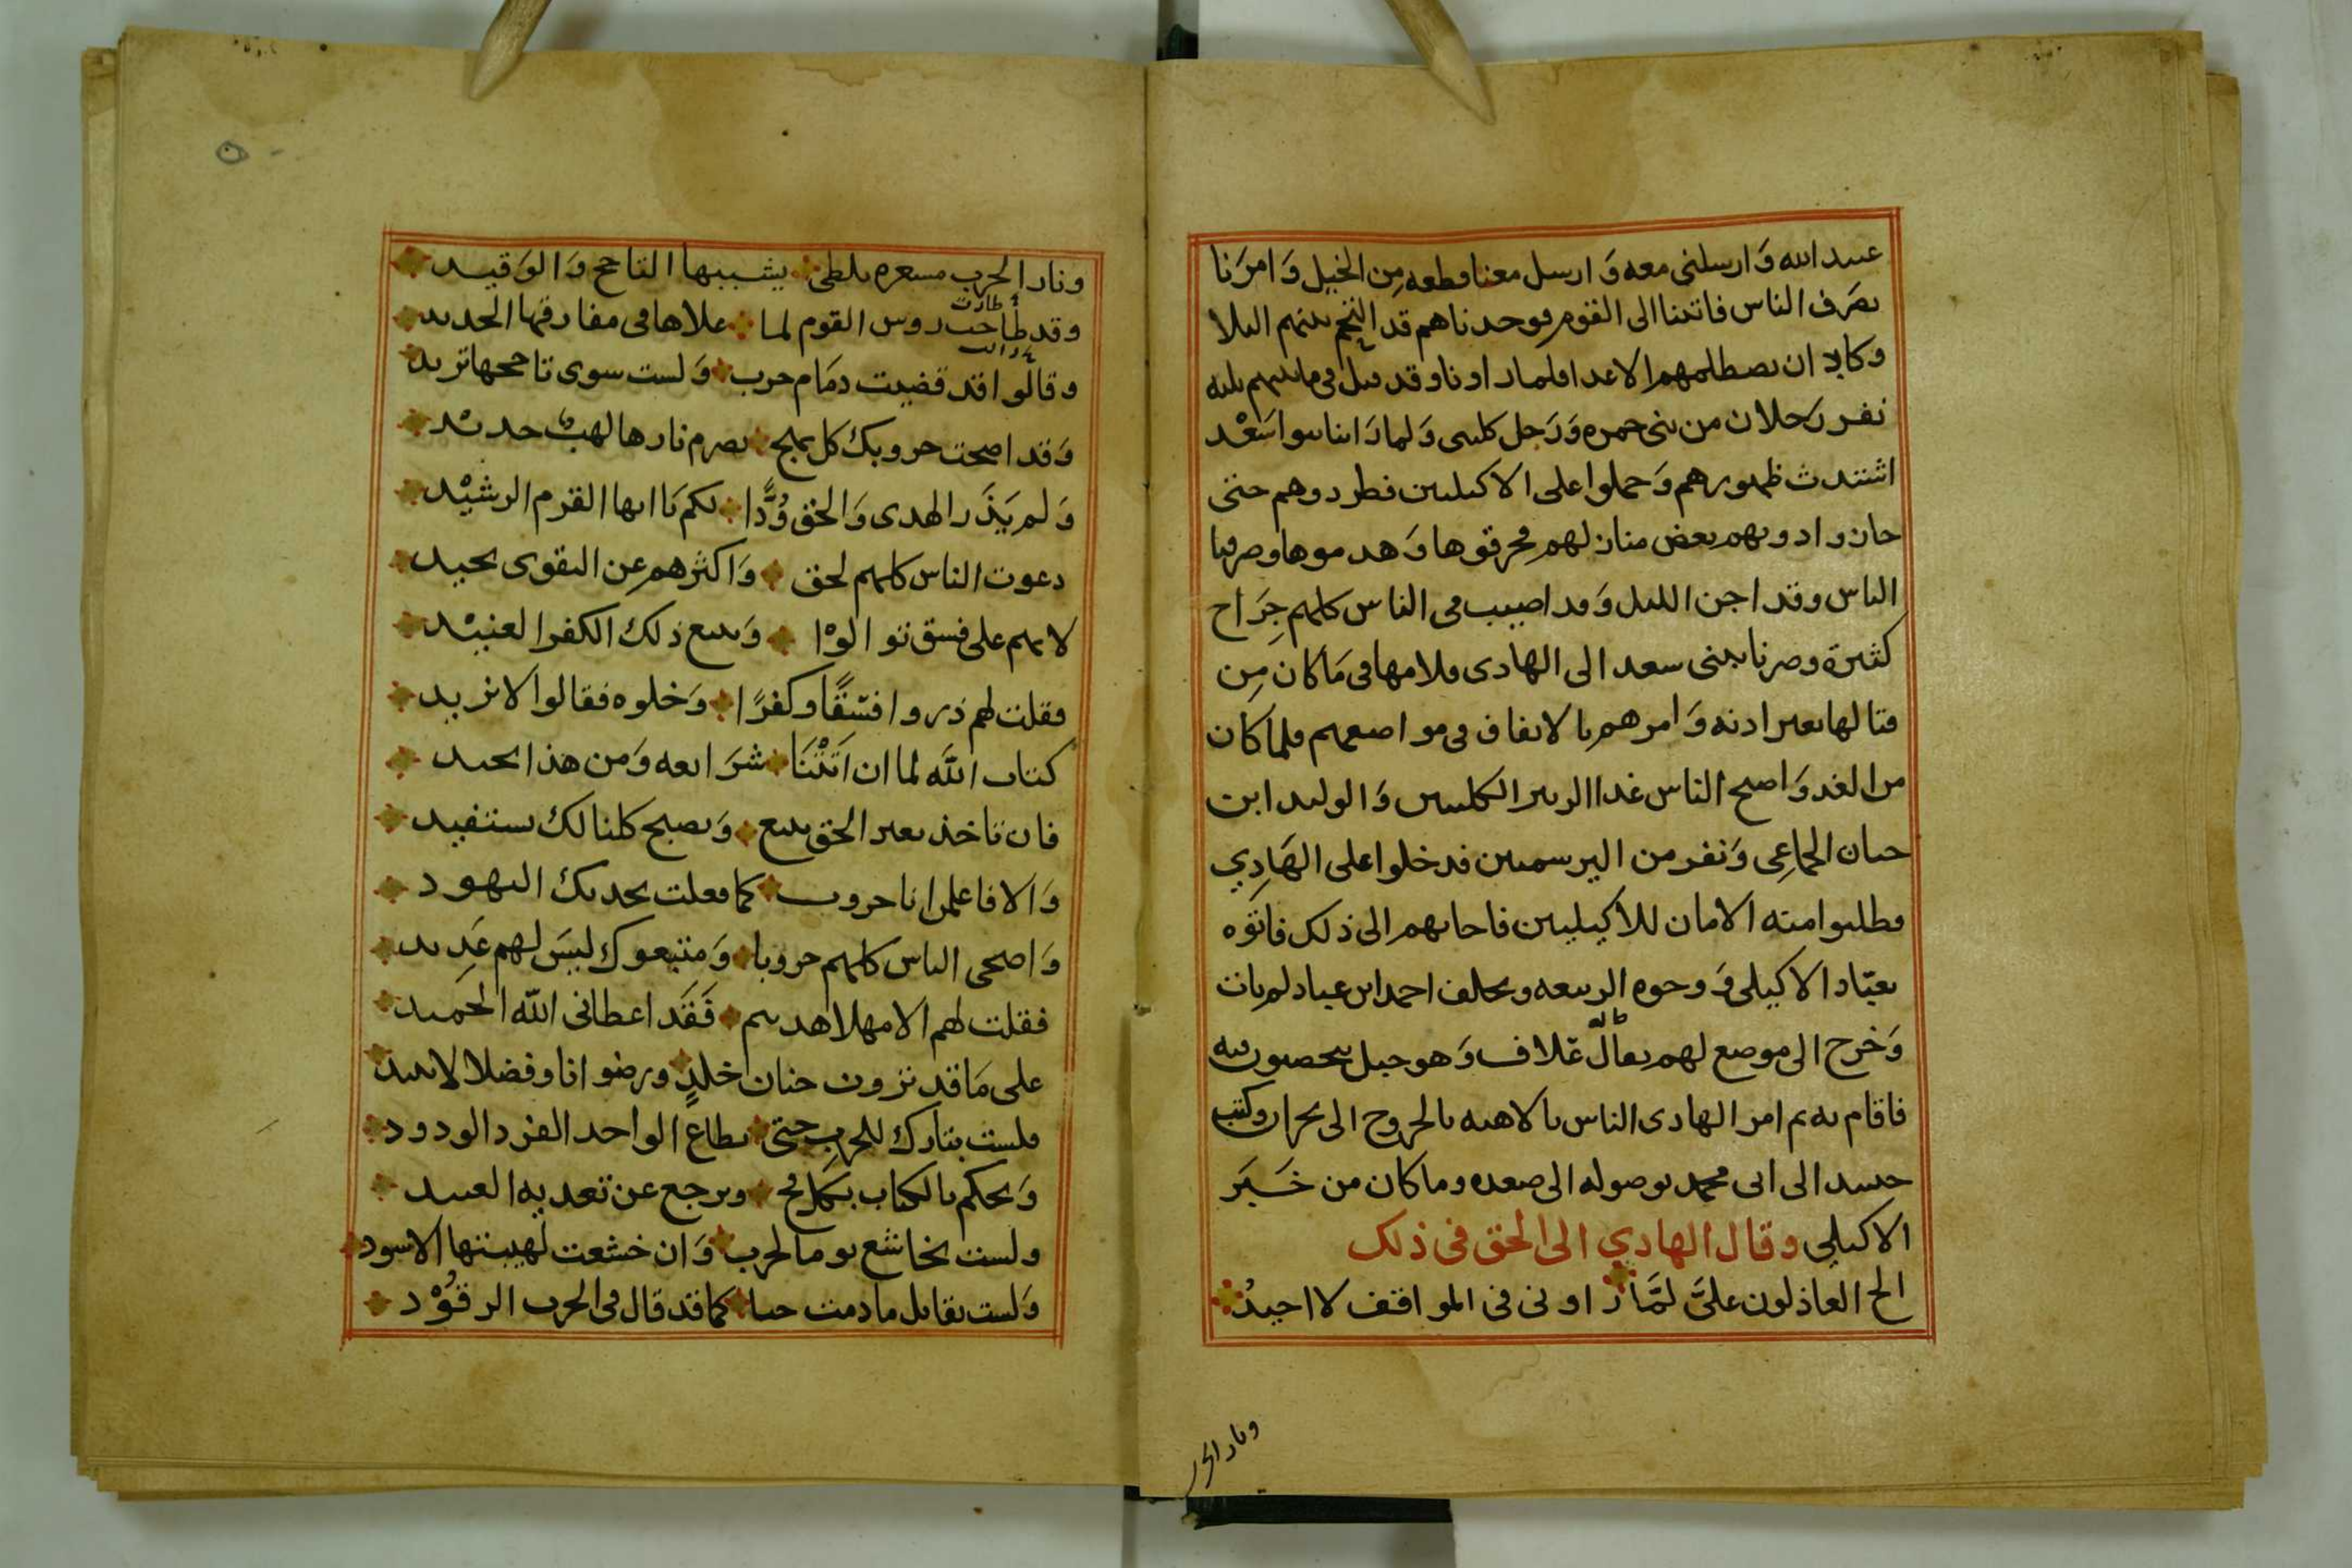 عبد الله وَارسلنى معه وَارسل معنا قطعه مِن الخيل وَامرَنا
بصَرف الناس فاتينا الى القوم فوجدناهم قد التحم بينهم البلا
وكاد ان يصطلمهم الاعدا فلما راونا وقد قتل فى ما بينهم ثلثه
نفر رَجلان من بنى حمره وَرَجل كلبى وَلما رَاينا بنوا سَعْد
اشتدت ظهورهم وَحملوا على الاكيليين فطردوهم حتى
حازوا دونهم بعض منازلهم فحرقوها وَهدموها وصرفنا
الناس وقد اجن الليل وَقد اصيب فى الناس كلهم جِرَاح
كثيرة وصرنا ببنى سعد الى الهادى فلامها فى مَا كان مِن
قتالها بغير اذنه وَامرهم بالايقاف فى مواضعهم فلما كان
من الغد وَاصبح الناس غدا الزبير الكلبيين وَالوليد ابن
حيان الجماعِى وَنفر من اليرسميين فدخلوا على الهَادِي
فطلبوا منه الامان للاكيليين فاجابهم الى ذلك فاتوه
بعبّاد الاكيلى وَوجوه الربيعه وتخلف احمد ابن عباد لم يات
وَخرج الى موضع لهم يقال لّه عّلاف وَهو جبل يتحصنون فيه
فاقام به ثم امر الهادى الناس بالاهبه بالخروج الى نجران وكتب
حينيد الى ابى محمد بوصوله الى صعده وما كان من خَبَر
الاكيلي وقال الهادي الى الحق فى ذلك
الح العاذلون علىَّ لمَّا رَاونى فى المواقف لا احيدُ
ونار الحر
ونار الحرب مسعره تلظى يشببها القاحح وَالوَقيد
طارت
وقد طاحت روس القوم لما علاها فى مفارقها الحديد
وقالوا قد قضيت دمَام حرب وَلست سوى تاججها تريد
وَقد اضحت حروبك كل فج يضرم نارها لهبٌ حديْد
وَلم يَذَر الهدى وَالحق وُدًّا لكم يَا ايها القرم الرشيْد
دعوت الناس كلهم لحق وَاكثرهم عن التقوى يحيد
لانهم على فسق توالوْا وَيتبع ذلك الكفر العنيْد
فقلت لهم ذروا فسْقًا وكفرًا وَخلوه فقالوا لا نريد
كتاب اللَّه لما ان اتَتْنَا شرَايعه وَمن هذا نحيد
فان تاخذ بغير الحق نتبع وَيصبح كلنا لك يستفيد
وَالا فاعلمن انا حروب كما فعلت بجدك اليهود
وَاضحى الناس كلهم حروبا وَمتبعوك ليسَ لهم عَدِيد
فقلت لهم الا مهلا هديتم فَقَد اعطانى اللّه الحَميد
على مَا قد ترون جنان خلدٍ ورضوانا وفضلا لا يبيد
فلست بتارك للحرب حتى يطاع الواحد الفرد الودود
وَيحكم بالكتاب بكل فج ويرجع عن تعديه العبيد
ولست بخاشع يوما لحرب وَان خشعت لهيبتها الاسود
وَلست بقايل ما دمت حيا كما قد قال فى الحرب الرقُوْد